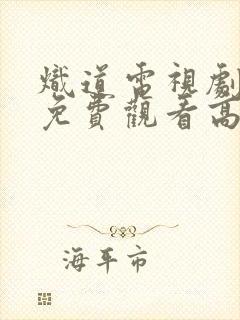 熾道電視劇
免費觀看高
海平市